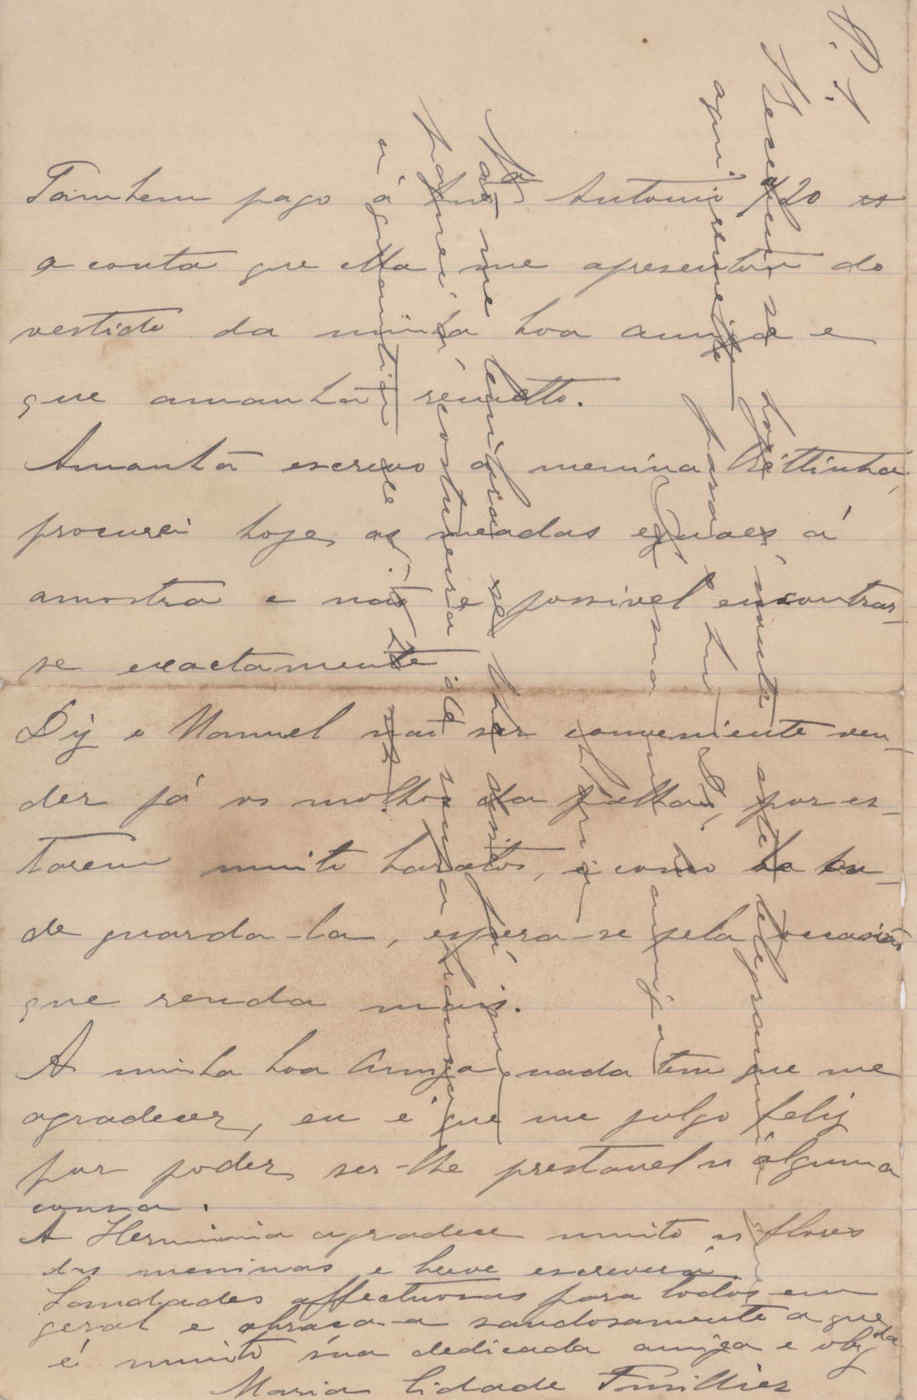 Tambem pago á Snrª Antonia 720 rs
a conta que ella me apresentou do
vestido da minha boa amiga e
que amanhã remetto.
Amanhã escrevo á menina
procurei hoje as meadas eguaes á
amostra e não é possivel encontrar-
se exactamente
Diz o Manuel não ser conveniente ven-
der já os molhos da palha, por es-
tarem muito baratos, e como ha on-
de guarda-la, espera-se pela occasião
que renda mais.
A minha boa amiga nada tem que me
agradecer, eu é que me julgo feliz
por poder ser-lhe prestavel n'alguma
cousa.
A Herminia agradece muito as flores
das meninas e breve escreverá.
Saudades affectuosas para todos em
geral e abraça-a saudosamente a que
é muito sua dedicada amiga e obgda
Maria Lidade
P.S.
Recebeu-se hoje, muito telegramma
aqui remetto para
Sua amiga
Não me lembra se lhe disse já que
paguei á costureira de
a quantia de